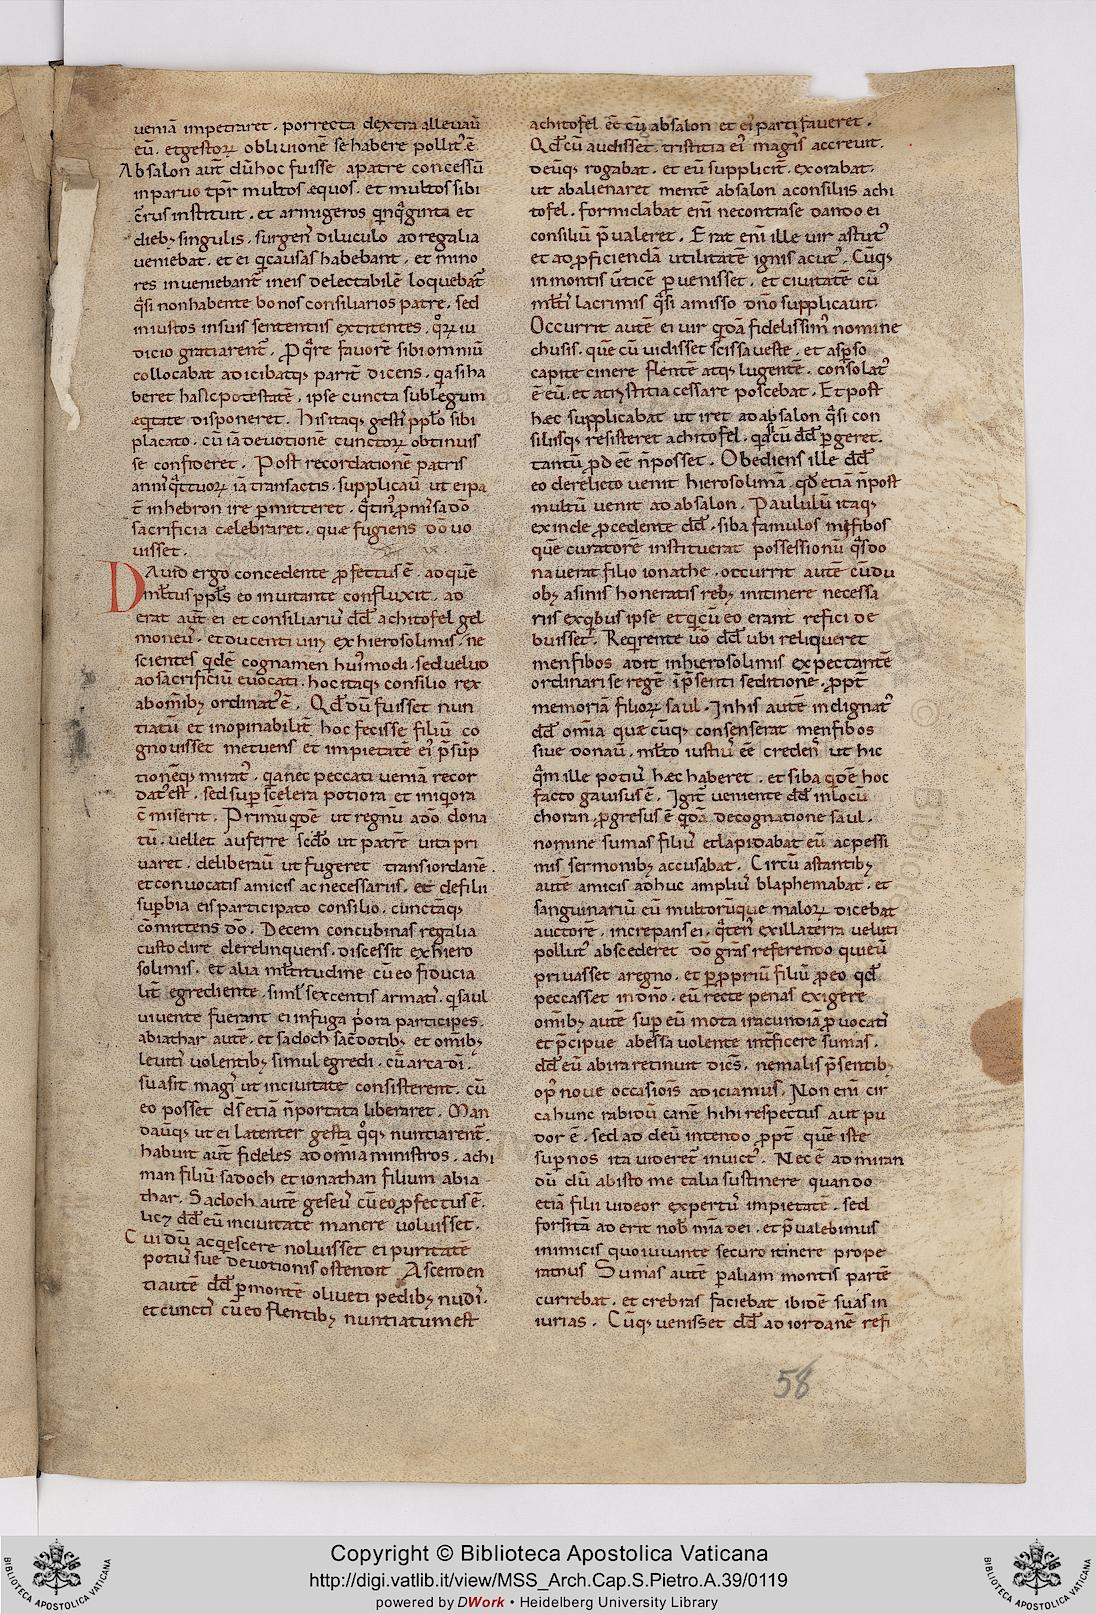 ueniā impetraret. porrecta dextra alleuaū
eū. et gestoꝝ obliuionē se habere pollitꝰ ē.
Absalon aut̄ dū hoc fuisse apatre concessū
inparuo tp̄r multos equos. et multos sibi
c̄rus instituit. et armigeros q̇nq̇ginta et
dieb; singulis. surgenſ diluculo ad regalia
ueniebat. et ei q̇ causas habebant. et mino
res inueniebant̄ ineis delectabilē loquebat̄
q̇si non habente bonos consiliarios patre. sed
iniustos insuis sententiis extitentes. q̊ꝝ iu
dicio gratiarent̄. ꝓ q̇re fauorē sibi omniū
collocabat adicibatq; parit̄ dicens. q̇a si ha
beret hasic potestatē. ipse cuncta sub legum
eq̇tate disponeret. His itaq; gesti ppl̄o sibi
placato. cū iā deuotionē cunctoꝝ obtinuis
se confideret. Post recordationē patris
annis q̇ttuoꝝ iā transactis. supplicaū ut ei pa
t̄ inhebron ire ꝑmitteret. q̇tin ꝓmisa dō
sacrificia cælebraret. quæ fugiens dō uo
uisset.
Dauid ergo concedente ꝓfectus ē. ad quē
ml̄tus ppl̄s eo inuitante confluxit. ad
erat aut̄ ei et consiliariꝰ dd̄ achitofel gel
moneuſ. et ducenti uiri ex hierosolimis. ne
scientes q̇dē cognamen huiꝰmodi. sed uelud
ad sacrificiū euocati. hoc itaq; consilio rex
ab omib; ordinatꝰ ē. Qd̄ dū fuisset nun
tiatū et inopinabilit̄ hoc fecisse filiū co
gnouisset metuens et impietatē eiꝰ p̄sūp
tionēq; miratꝰ. q̇a nec peccati ueniā recor
datꝰ est. sed suꝑ scelera potiora et iniq̇ora
c̄miserit. Primū q̇dē ut regnū adō dona
tū. uellet auferre scd̄o ut patrē uita pri
uaret. deliberaū ut fugeret transiordanē.
et conuocatis amicis ac necessariis. et de filii
suꝑbia eis participato consilio. cunctaq;
cōmittens dō. Decem concubinas regalia
custodire derelinquens. discessit ex hiero
solimis. et alia ml̄titudine cū eo fiducia
lit̄ egrediente. siml̄ sexcentis armati. q̇ saul
uiuente fuerant ei infuga p̄ora participes.
abiathar autē. et sadoch sac̄dotib; et omib;
leuiti uolentib; simul egredi. cū arca dī.
suasit magi ut inciuitate consisterent. cū
eo posset dſ etiā n̄portata liberaret. Man
dauitq; ut ei latenter gesta q̇q; nuntiarent̄.
habuit aut̄ fideles ad omīa ministros. achi
man filiū sadoch et ionathan filium abia
thar. Sadoch autē geseuſ cū eo ꝓfectus ē.
lic; dd̄ eū inciuitate manere uoluisset.
Cui dū acq̇escere noluisset ei puritatē
potiuſ sue deuotionis ostendit Ascenden
ti autē dd̄ ꝑ montē oliueti pedib; nudi.
et cuncti cū eo flentib; nuntiatum est
achitofel eē cū absalon et ei parti faueret.
Qd̄ cū audisset. tristitia eiꝰ magis accreuit.
deūq; rogabat. et eū supplicit̄ exorabat.
ut abalienaret mentē absalon aconsiliis achi
tofel. formidabat enī necontrase dando ei
consiliū p̄ualeret. Erat enī ille uir astutꝰ
et ad ꝓficiendā utilitatē ignis acutꝰ. Cūq;
inmontis ūticē ꝑuenisset. et ciuitatē cū
ml̄ti lacrimis q̇si amisso dn̄o supplicauit.
Occurrit autē ei uir q̇dā fidelissimꝰ nomine
chusis. quē cū uidisset scissa ueste. et asꝑso
capite cinere flentē atq; lugentē. consolatꝰ
ē eū. et atristitia cessare poscebat. Et post
hæc supplicabat ut iret ad absalon q̇si con
siliisq; resisteret achitofel. q̇a cū dd̄ ꝑgeret.
tantū ꝓdeē n̄posset. Obediens ille dd̄
eo derelicto uenit hierosolimā. qđ etiā n̄post
multū uenit ad absalon. Paululū itaq;
exinde ꝓcedente dd̄. siba famulos mifibos
quē curatorē instituerat possessionū q̇s do
nauerat filio ionathe. occurrit autē cū du
ob; asinis honeratis reb; initinere necessa
riis exq̇bus ipse et q̇ cū eo erant refici de
buisset. Req̇rente ūo dd̄ ubi reliqueret
menfibos adit inhierosolimis expectantē
ordinari se regē ip̄senti seditione. ꝓpt̄
memoriā filioꝝ saul. Inhis autē indignatꝰ
dd̄ omīa quæcūq; consenserat menfibos
siue donaū. ml̄to iustiuſ eē credenſ ut hic
q̇m ille potiuſ hæc haberet. et siba q̇dē hoc
facto gauisus ē. Igit̄ ueniente dd̄ inlocū
choran ꝓgresus ē q̇dā decognatione saul.
nomine sumas filiuſ et lapidabat eū ac pessi
mis sermonib; accusabat. Circū astantib;
autē amicis adhuc ampliuſ blaphemabat. et
sanguinariū cū multorūque maloꝝ dicebat
auctorē. increpans ei. q̇tenꝰ exilla terra ueluti
pollutꝰ abscederet dō grās referendo qui eū
priuasset aregno. et ꝑ ꝓpriū filiū ꝓeo qđ
peccasset indn̄o. eū recte penas exigere
omīb; autē suꝑ eū mota iracundiā ꝓuocati
et p̄cipue abessa uolente int̄ficere sumas.
dd̄ eū abira retinuit dicſ. nemalis p̄sentib;
opꝰ noue occasionis adiciamus. Non enī cir
ca hunc rabidū canē hihi respectus aut pu
dor ē. sed ad deū intendo ꝓpt̄ quē iste
suꝑ nos ita uideret̄ inuictꝰ. Nec ē admiran
dū dū abisto me talia sustinere quando
etiā filii uideor expertuſ impietatē. sed
forsitā aderit nob̄ mīa dei. et p̄ualebimus
inimicis quo iuuante securo itinere prope
ramus Sumas autē ꝑ aliam montis partē
currebat. et crebras faciebat ibidē suas in
iurias. Cūq; uenisset dd̄ ad iordanē refi
58
Copyright © Biblioteca Apostolica Vaticana
http://digi.vatlib.it/view/MSS_Arch.Cap.S.Pietro.A.39/0119
powered by DWork • Heidelberg University Library